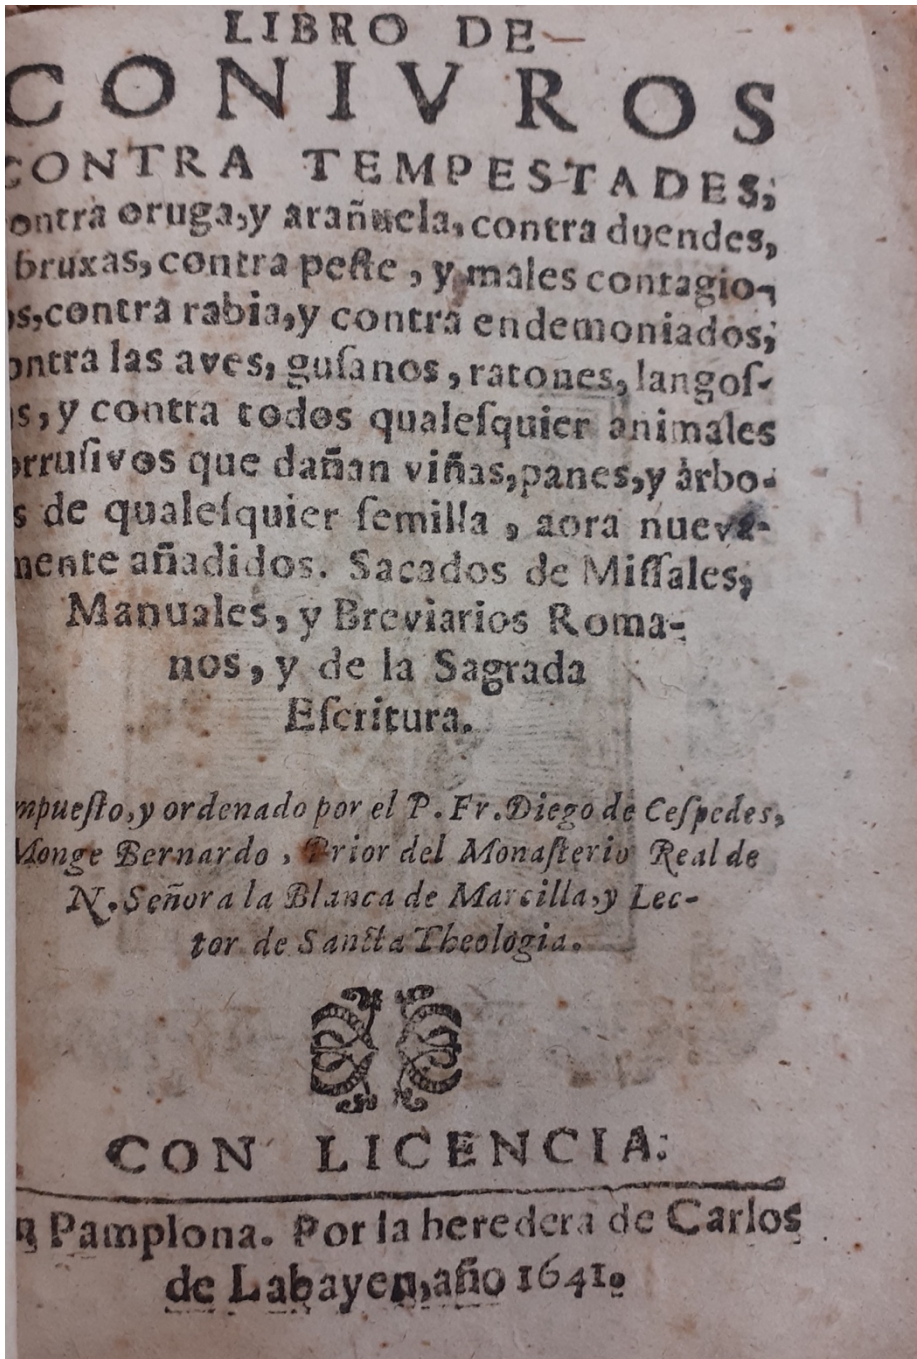 LIBRO DE
CONIVROS
CONTRA TEMPESTADES,
ontra oruga, y arañuela, contra duendes,
bruxas, contra peſte, y males contagio-
os, contra rabia, y contra endemoniados,
ontra las aves, guſanos, ratones, langoſ-
as, y contra todos qualeſquier animales
orruſivos que dañan viñas, panes, y arbo-
s de qualeſquier ſemilla, aora nueva-
mente añadidos. Sacados de Miſſales,
Manuales, y Breviarios Roma-
nos, y de la Sagrada
Eſcritura.
mpueſto, y ordenado por el P. Fr. Diego de Ceſpedes,
Monge Bernardo, Prior del Monaſterio Real de
N. Señora la Blanca de Marcilla, y Lec-
tor de Sancta Theologia.
CON LICENCIA:
n Pamplona. Por la heredera de Carlos
de Labayen, año 1641.